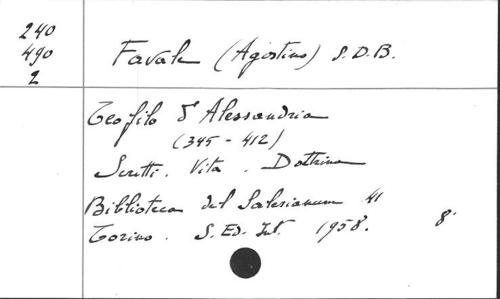 240
490
2
Favale (Agostino) S.D.B.
Teofilo d'Alessandria
(345-412)
Scritti. Vita. Dottrina
Biblioteca del Salesianum 41
Torino. S. Ed. Int. 1958. 8°